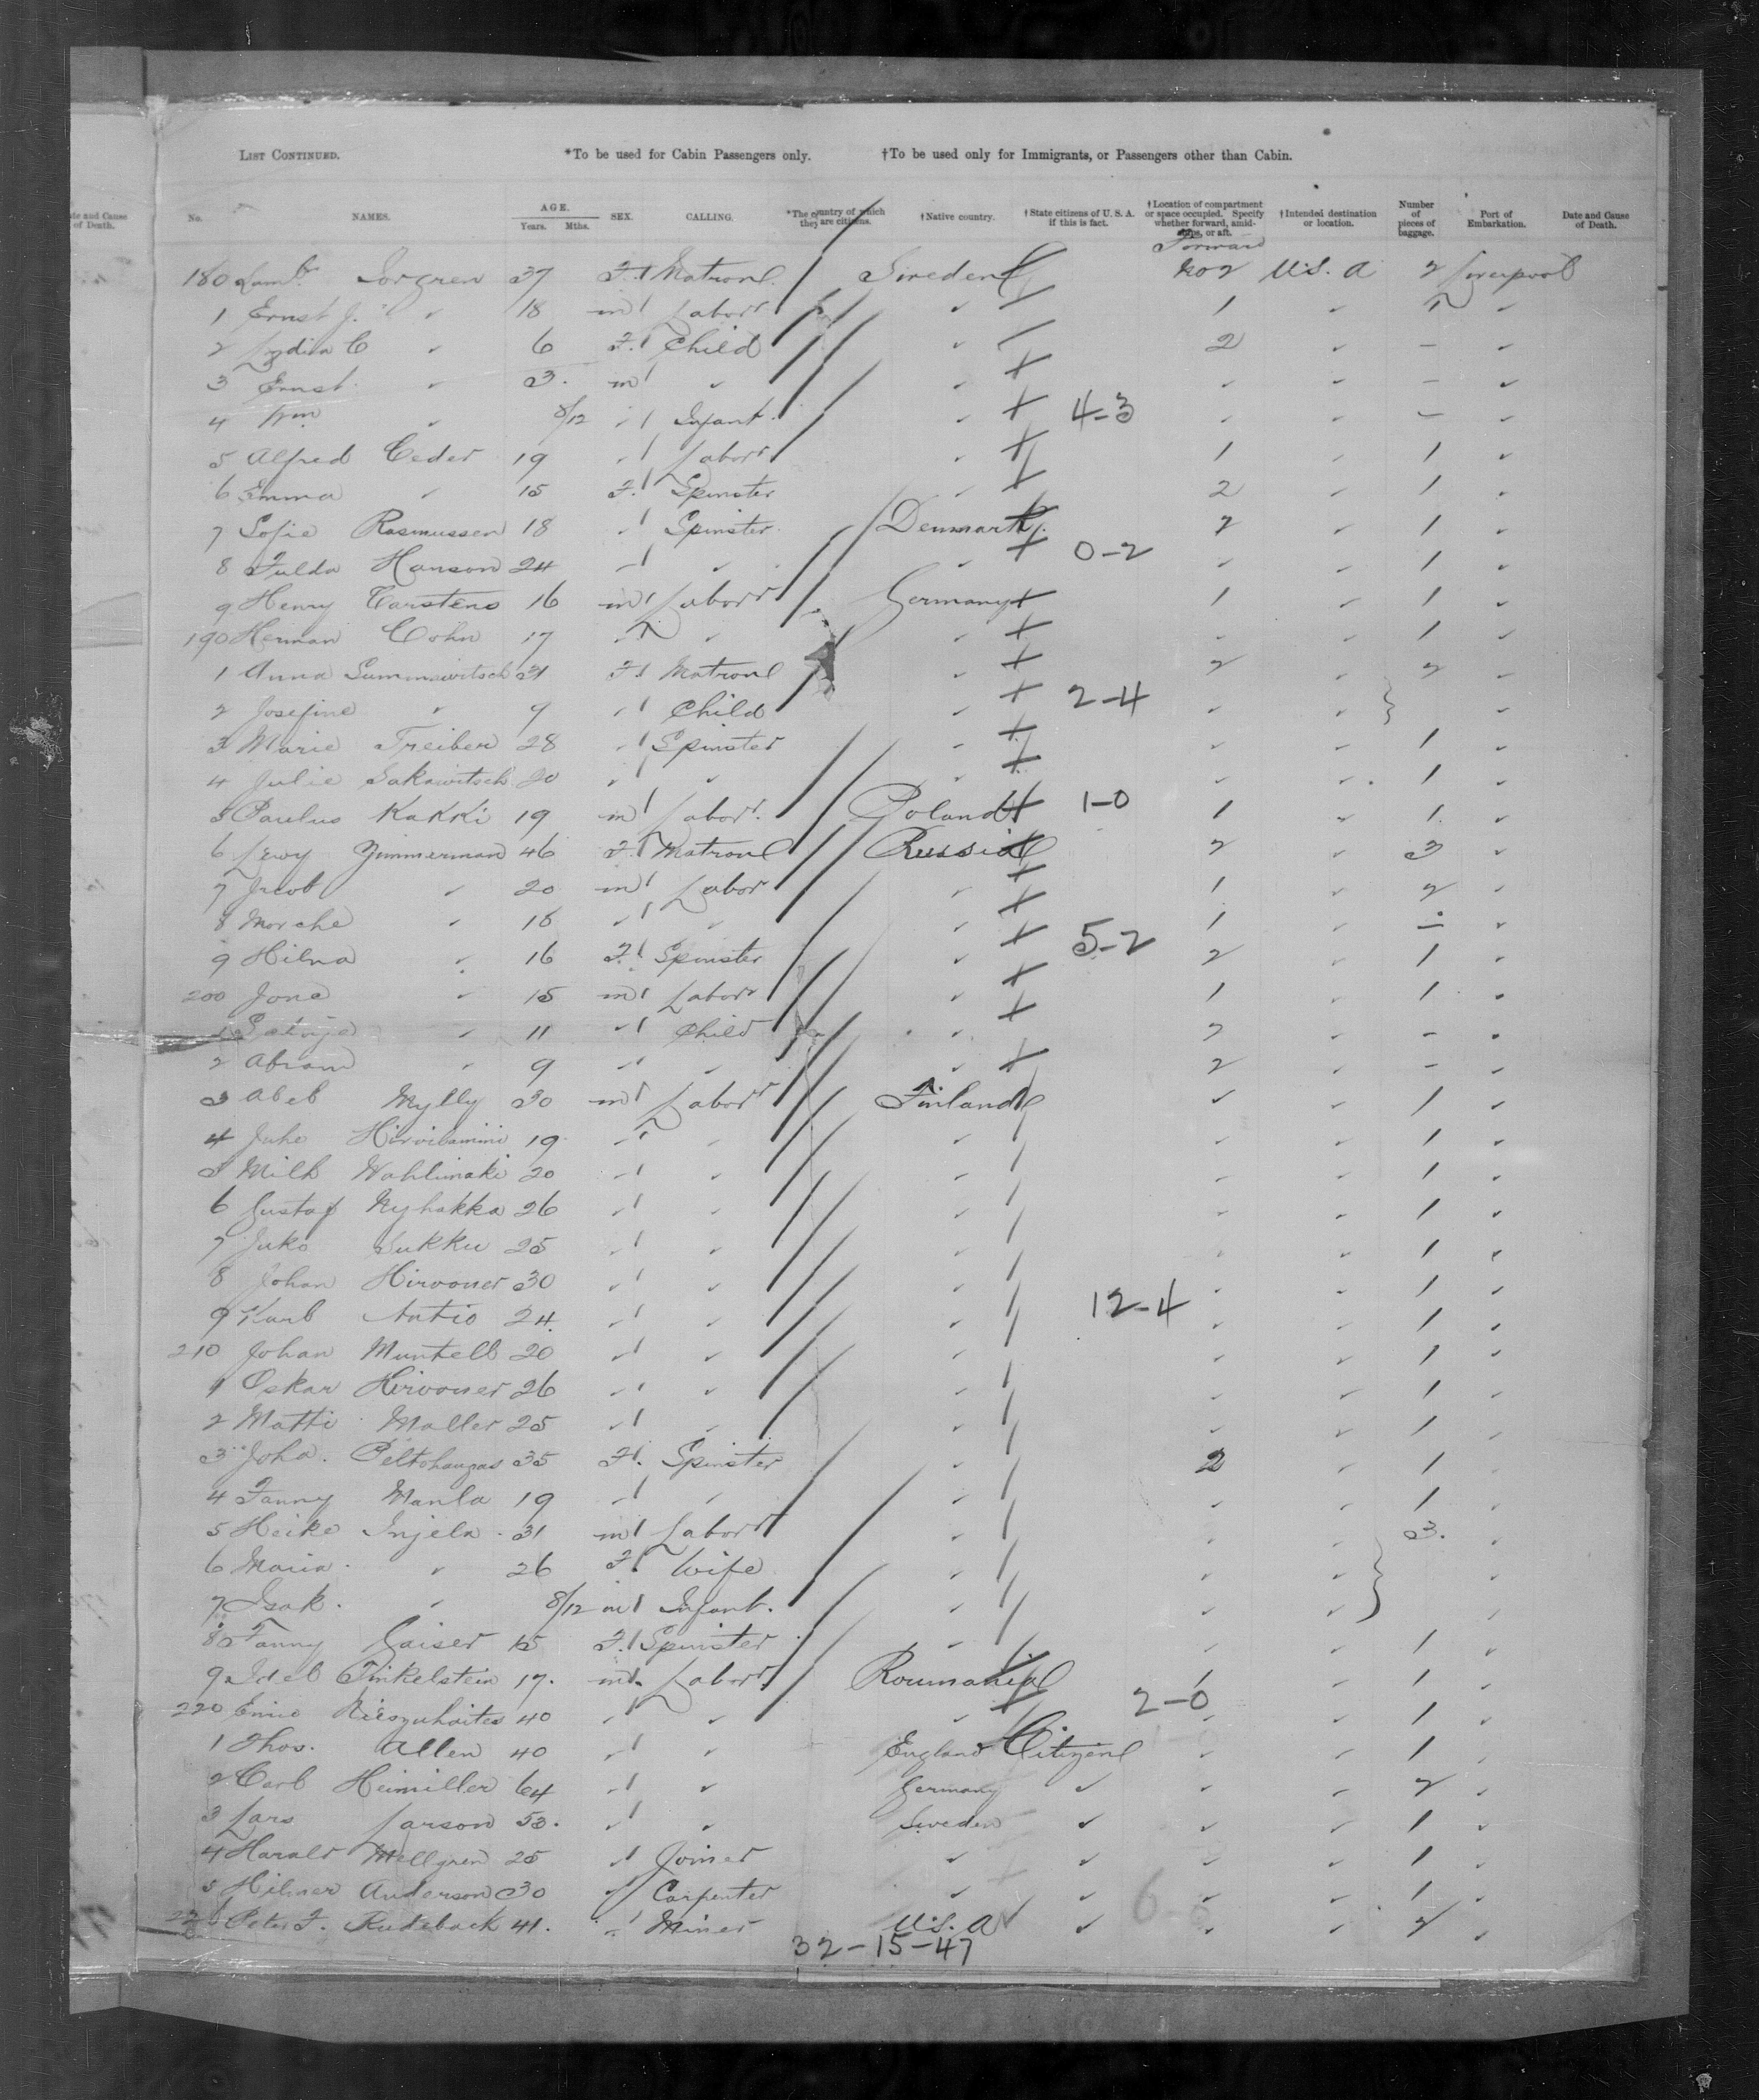 te and Cause of Death.
LIST CONTINUED. *To be used for Cabin Passengers only. †To be used only for Immigrants, or Passengers other than Cabin.
No. NAMES. AGE. Years. Mths. SEX. CALLING. *The country of which they are citizens. †Native country. †State citizens of U. S. A. if this is fact. †Location of compartment or space occupied. Specify whether forward, amidships, or aft. †Intended destination or location. Number of pieces of baggage. Port of Embarkation. Date and Cause of Death.
Forward
180 Sorgren 37 F. Matron Sweden No 2 U.S. A 2 Liverpool
1 Ernst J. " 18 m Labor ✓ 1 ✓ 1 ✓
2 Lydia C ✓ 6 F. Child ✓ 2 ✓ – ✓
3 Ernst ✓ 3. m ✓ ✓ ✓ ✓ – ✓
4 Wm ✓ 8/12 ✓ Infant. ✓ 4-3 ✓ ✓ – ✓
5 Alfred Ceder 19 ✓ Labor ✓ 1 ✓ 1 ✓
6 Emma ✓ 15 F. Spinster ✓ 2 ✓ 1 ✓
7 Sofie Rasmussen 18 ✓ Spinster Denmark. 2 ✓ 1 ✓
8 Hulda Hanson 24 ✓ ✓ ✓ 0-2 ✓ ✓ 1 ✓
9 Henry Carstens 16 m Labor Germany 1 ✓ 1 ✓
190 Herman Cohn 17 ✓ ✓ ✓ ✓ ✓ 1 ✓
1 Anna 31 F. Matron ✓ 2 ✓ 2 ✓
2 Josefine ✓ 9 ✓ Child ✓ 2-4 ✓ ✓ ✓
3 Marie Treiber 28 ✓ Spinster ✓ ✓ ✓ 1 ✓
4 Julie Sakowitsch 20 ✓ ✓ ✓ ✓ ✓ 1 ✓
5 Paulus Kakki 19 m Labor. Poland 1-0 1 ✓ 1 ✓
6 Lewy Zimmerman 46 F. Matron Russia 2 ✓ 3 ✓
7 Jacob ✓ 20 m Labor ✓ 1 ✓ 2 ✓
8 Morche ✓ 18 ✓ ✓ ✓ 1 ✓ – ✓
9 Hilna ✓ 16 F. Spinster ✓ 5-2 2 ✓ 1 ✓
200 Jone ✓ 15 m Labor ✓ 1 ✓ 1 ✓
1 ✓ 11 ✓ Child ✓ 2 ✓ – ✓
2 Abram ✓ 9 ✓ ✓ ✓ 2 ✓ – ✓
3 Abel Mylly 30 m Labor Finland ✓ ✓ 1 ✓
4 Juho 19 ✓ ✓ ✓ ✓ ✓ 1 ✓
5 20 ✓ ✓ ✓ ✓ ✓ 1 ✓
6 Gustaf Nyhakka 26 ✓ ✓ ✓ ✓ ✓ 1 ✓
7 Juko Sukku 25 ✓ ✓ ✓ ✓ ✓ 1 ✓
8 Johan Hirvoner 30 ✓ ✓ ✓ ✓ ✓ 1 ✓
9 Karl Antio 24. ✓ ✓ ✓ 12-4 ✓ ✓ 1 ✓
210 Johan Muntell 20 ✓ ✓ ✓ ✓ ✓ 1 ✓
1 Oskar Hirvoner 26 ✓ ✓ ✓ ✓ ✓ 1 ✓
2 Matti Maller 25 ✓ ✓ ✓ ✓ ✓ 1 ✓
3 Joha. Peltohangas 35 F. Spinster ✓ 2 ✓ 1 ✓
4 Fanny Manla 19 ✓ ✓ ✓ ✓ ✓ 1 ✓
5 Heike Injela 31 m Labor ✓ ✓ ✓ 3. ✓
6 Maria ✓ 26 F. Wife ✓ ✓ ✓ ✓
7 Isak. ✓ 8/12 m Infant. ✓ ✓ ✓ ✓
8 Fanny Gaiser 15 F. Spinster ✓ ✓ ✓ 1 ✓
9 Finkelstein 17. m. Labor Roumania 1 ✓ 1 ✓
220 40 ✓ ✓ ✓ 2-0 ✓ ✓ 1 ✓
1 Thos. Allen 40 ✓ ✓ England Citizen ✓ ✓ 1 ✓
2 Carl Heimiller 64 ✓ ✓ Germany ✓ ✓ ✓ 2 ✓
3 Lars Larson 53. ✓ ✓ Sweden ✓ ✓ ✓ 1 ✓
4 Harald Mellgren 25 ✓ Joiner ✓ ✓ ✓ ✓ 1 ✓
5 Hilmer Anderson 30 ✓ Carpenter ✓ ✓ ✓ ✓ 1 ✓
226 Peter F. Rudeback 41. ✓ Miner U.S. A ✓ ✓ ✓ 2 ✓
32-15-47